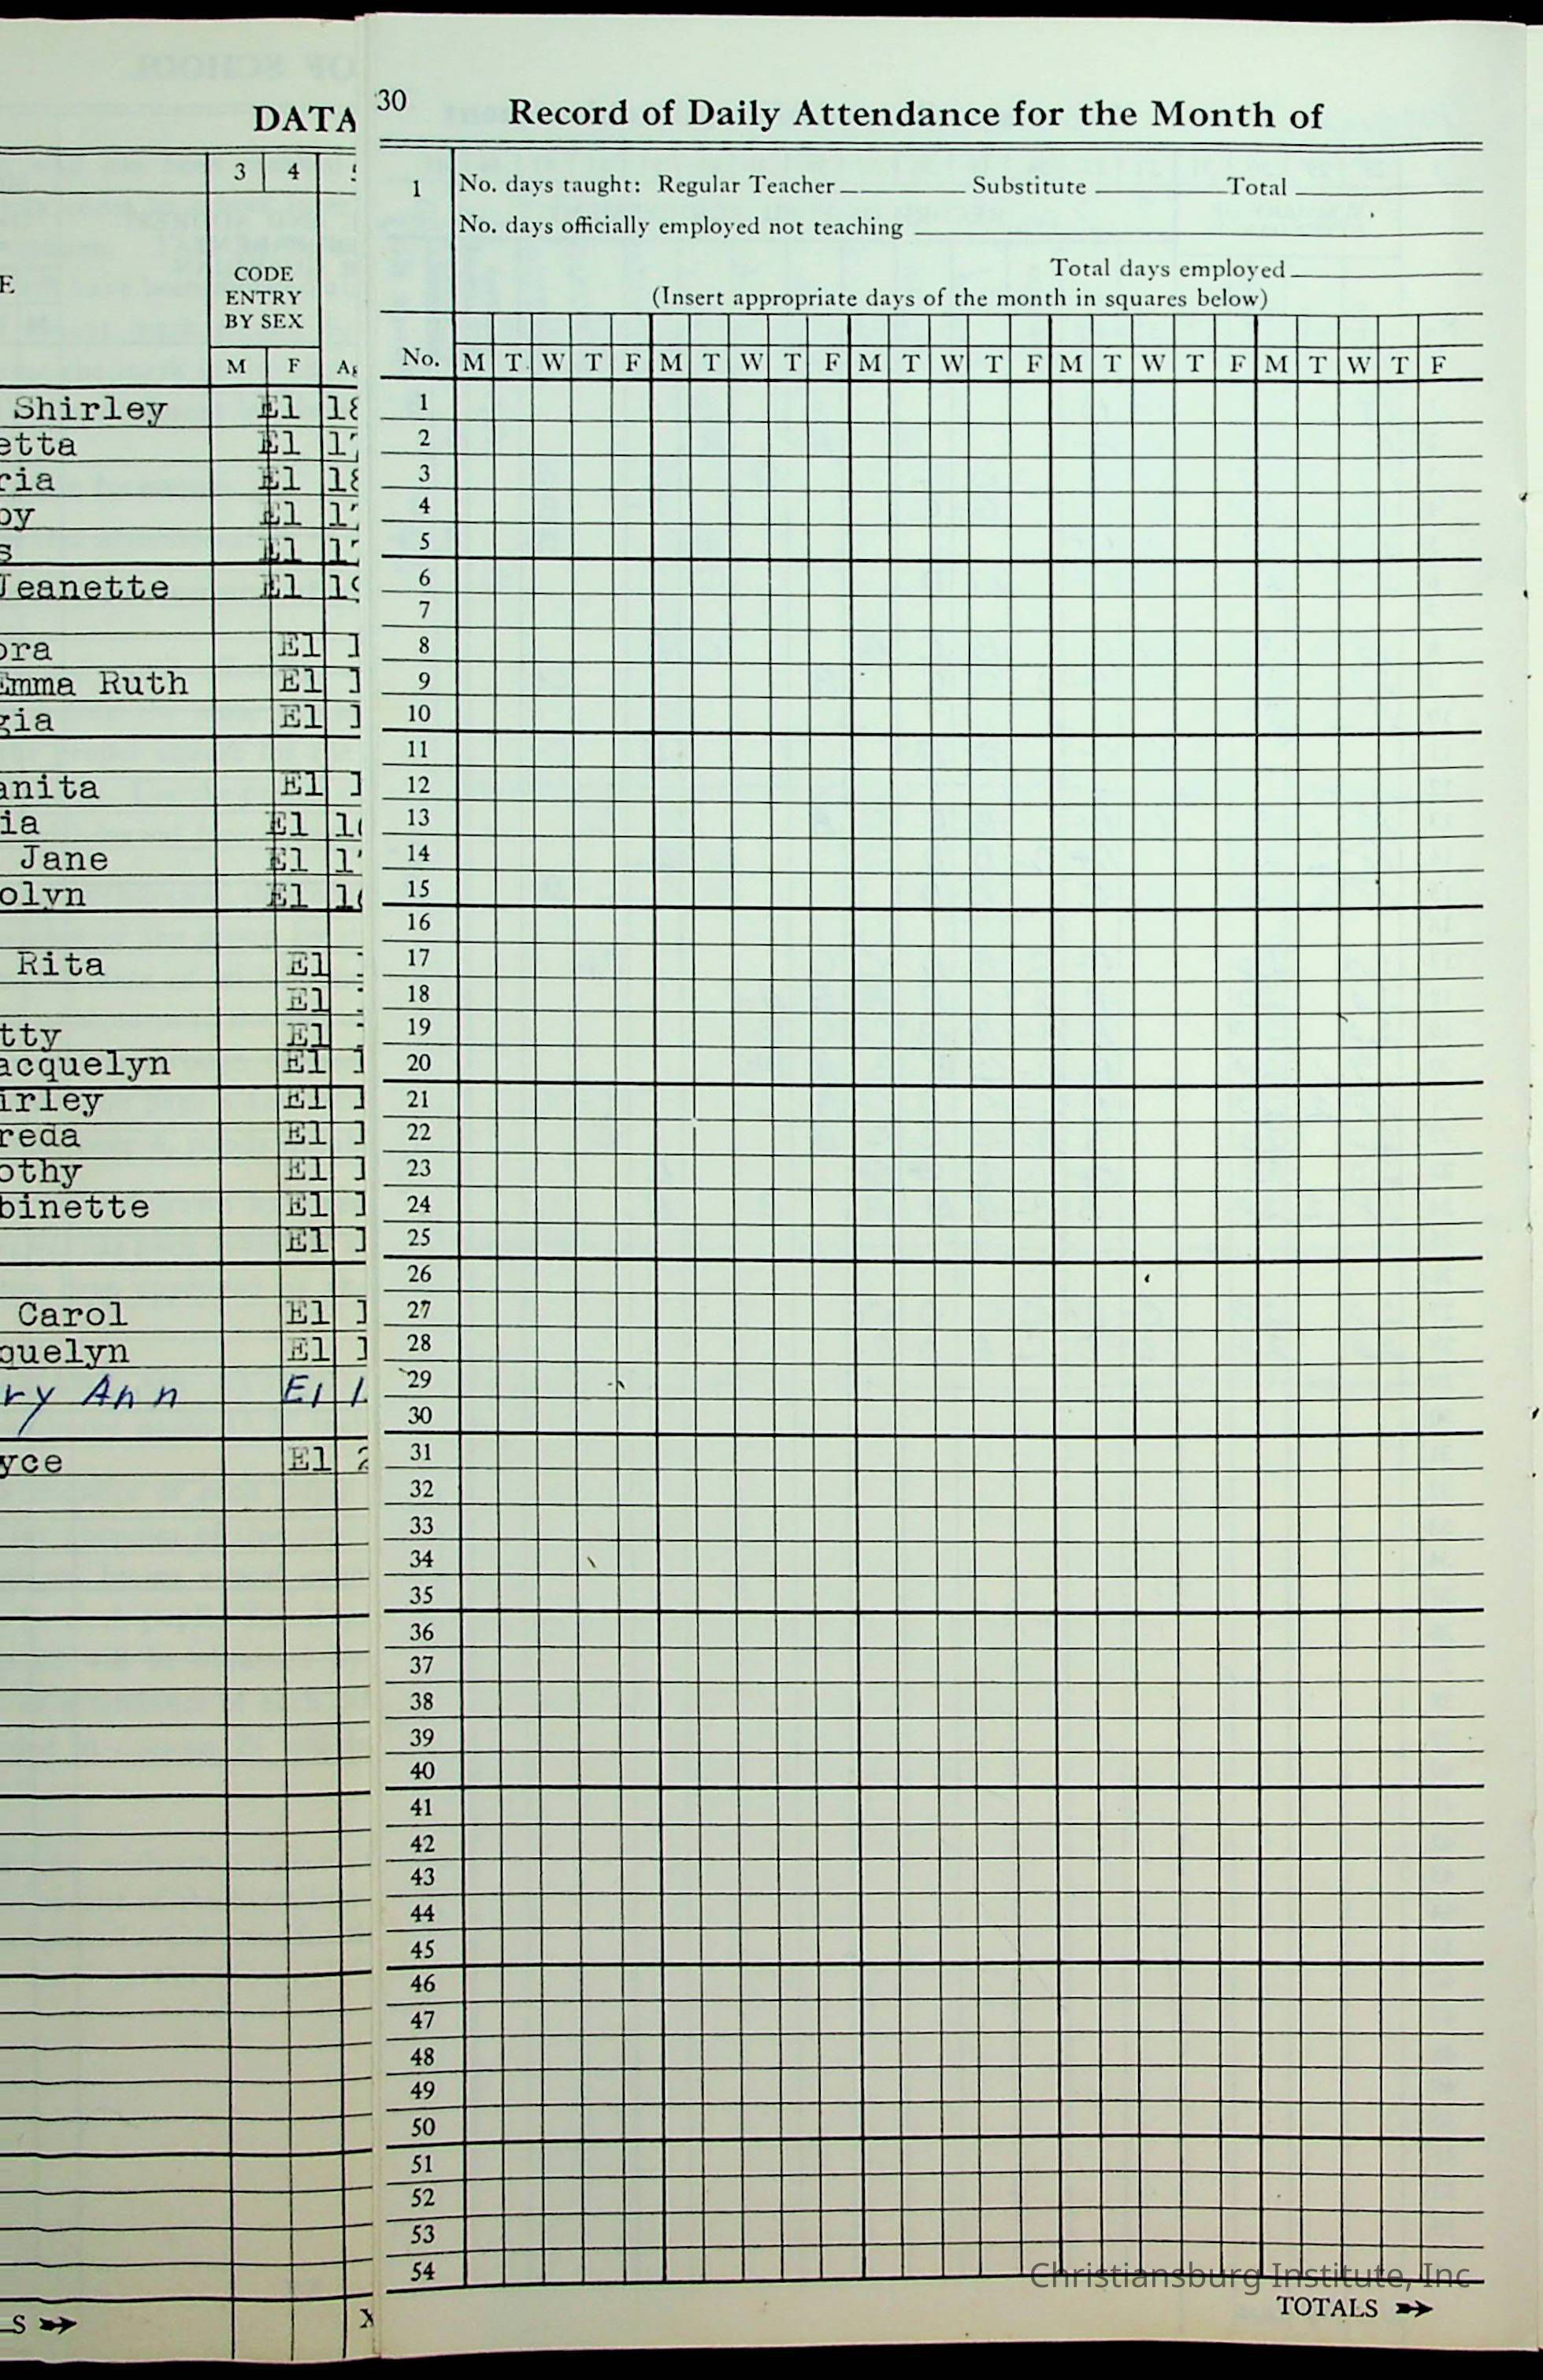 DATA
3 4
E
CODE
ENTRY
BY SEX
M F
Shirley El
etta El
ria El
by El
s El
Jeanette El
ora El
Emma Ruth El
gia El
anita El
ia El
Jane El
olyn El
Rita El
El
tty El
acquelyn El
irley El
reda El
othy El
binette El
El
Carol El
quelyn El
ry Ann El
yce El
S
X
30
Record of Daily Attendance for the Month of
1 No. days taught: Regular Teacher Substitute Total
No. days officially employed not teaching
Total days employed
(Insert appropriate days of the month in squares below)
No. M T W T F M T W T F M T W T F M T W T F M T W T F
1
2
3
4
5
6
7
8
9
10
11
12
13
14
15
16
17
18
19
20
21
22
23
24
25
26
27
28
29
30
31
32
33
34
35
36
37
38
39
40
41
42
43
44
45
46
47
48
49
50
51
52
53
54
Christiansburg Institute, Inc
TOTALS